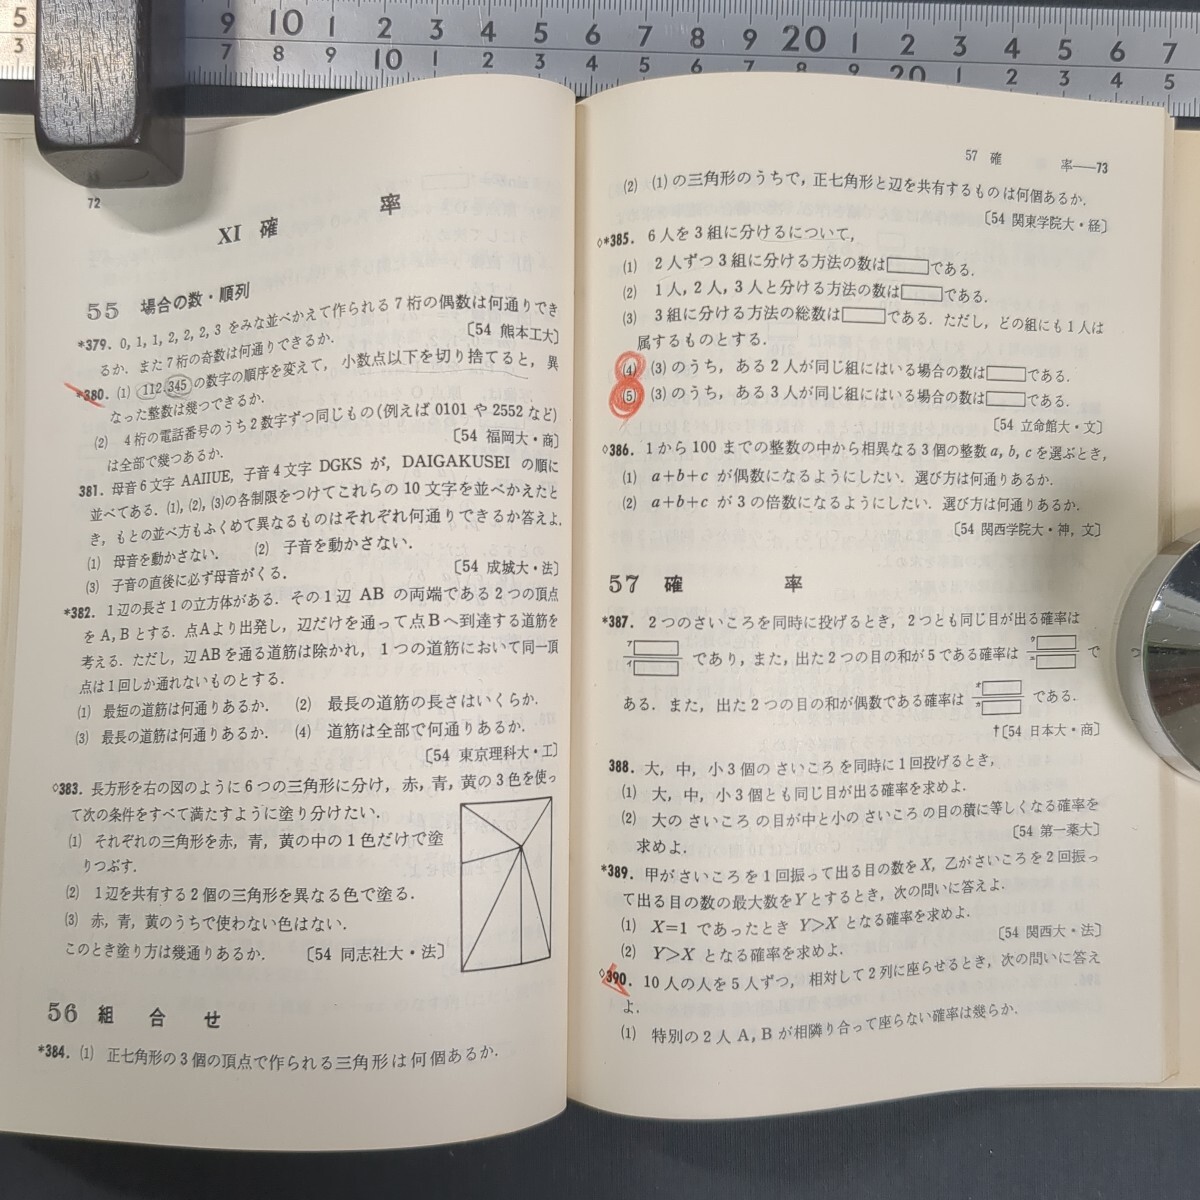 5 9 10 1 2 3 4 5 6 7 8 9 20 1 2 3 4 5 6 7
3 7 8 9 10 1 2 3 4 5 6 7 8 9 20 1 2 3 4 5
72
XI 確 率
55 場合の数・順列
*379. 0, 1, 1, 2, 2, 2, 3 をみな並べかえて作られる7桁の偶数は何通りでき
るか. また7桁の奇数は何通りできるか. 〔54 熊本工大〕
*380. (1) 112.345 の数字の順序を変えて, 小数点以下を切り捨てると, 異
なった整数は幾つできるか.
(2) 4桁の電話番号のうち2数字ずつ同じもの(例えば 0101 や 2552 など)
は全部で幾つあるか. 〔54 福岡大・商〕
381. 母音6文字 AAIIUE, 子音4文字 DGKS が, DAIGAKUSEI の順に
並べてある. (1), (2), (3)の各制限をつけてこれらの 10 文字を並べかえたと
き, もとの並べ方もふくめて異なるものはそれぞれ何通りできるか答えよ.
(1) 母音を動かさない. (2) 子音を動かさない.
(3) 子音の直後に必ず母音がくる. 〔54 成城大・法〕
*382. 1辺の長さ1の立方体がある. その1辺 AB の両端である2つの頂点
を A, B とする. 点Aより出発し, 辺だけを通って点Bへ到達する道筋を
考える. ただし, 辺ABを通る道筋は除かれ, 1つの道筋において同一頂
点は1回しか通れないものとする.
(1) 最短の道筋は何通りあるか. (2) 最長の道筋の長さはいくらか.
(3) 最長の道筋は何通りあるか. (4) 道筋は全部で何通りあるか.
〔54 東京理科大・工〕
◇383. 長方形を右の図のように6つの三角形に分け, 赤, 青, 黄の3色を使っ
て次の条件をすべて満たすように塗り分けたい.
(1) それぞれの三角形を赤, 青, 黄の中の1色だけで塗
りつぶす.
(2) 1辺を共有する2個の三角形を異なる色で塗る.
(3) 赤, 青, 黄のうちで使わない色はない.
このとき塗り方は幾通りあるか. 〔54 同志社大・法〕
56 組 合 せ
*384. (1) 正七角形の3個の頂点で作られる三角形は何個あるか.
57 確 率——73
(2) (1)の三角形のうちで, 正七角形と辺を共有するものは何個あるか.
〔54 関東学院大・経〕
◇*385. 6人を3組に分けるについて,
(1) 2人ずつ3組に分ける方法の数は□である.
(2) 1人, 2人, 3人と分ける方法の数は□である.
(3) 3組に分ける方法の総数は□である. ただし, どの組にも1人は
属するものとする.
(4) (3)のうち, ある2人が同じ組にはいる場合の数は□である.
(5) (3)のうち, ある3人が同じ組にはいる場合の数は□である.
〔54 立命館大・文〕
◇386. 1から100までの整数の中から相異なる3個の整数 a, b, c を選ぶとき,
(1) a+b+c が偶数になるようにしたい. 選び方は何通りあるか.
(2) a+b+c が3の倍数になるようにしたい. 選び方は何通りあるか.
〔54 関西学院大・神, 文〕
57 確 率
*387. 2つのさいころを同時に投げるとき, 2つとも同じ目が出る確率は
ア□/イ□ であり, また, 出た2つの目の和が5である確率は ウ□/エ□ で
ある. また, 出た2つの目の和が偶数である確率は オ□/カ□ である.
†〔54 日本大・商〕
388. 大, 中, 小3個のさいころを同時に1回投げるとき,
(1) 大, 中, 小3個とも同じ目が出る確率を求めよ.
(2) 大のさいころの目が中と小のさいころの目の積に等しくなる確率を
求めよ. 〔54 第一薬大〕
*389. 甲がさいころを1回振って出る目の数をX, 乙がさいころを2回振っ
て出る目の数の最大数をYとするとき, 次の問いに答えよ.
(1) X=1 であったとき Y>X となる確率を求めよ.
(2) Y>X となる確率を求めよ. 〔54 関西大・法〕
◇390. 10人の人を5人ずつ, 相対して2列に座らせるとき, 次の問いに答え
よ.
(1) 特別の2人 A, B が相隣り合って座らない確率は幾らか.